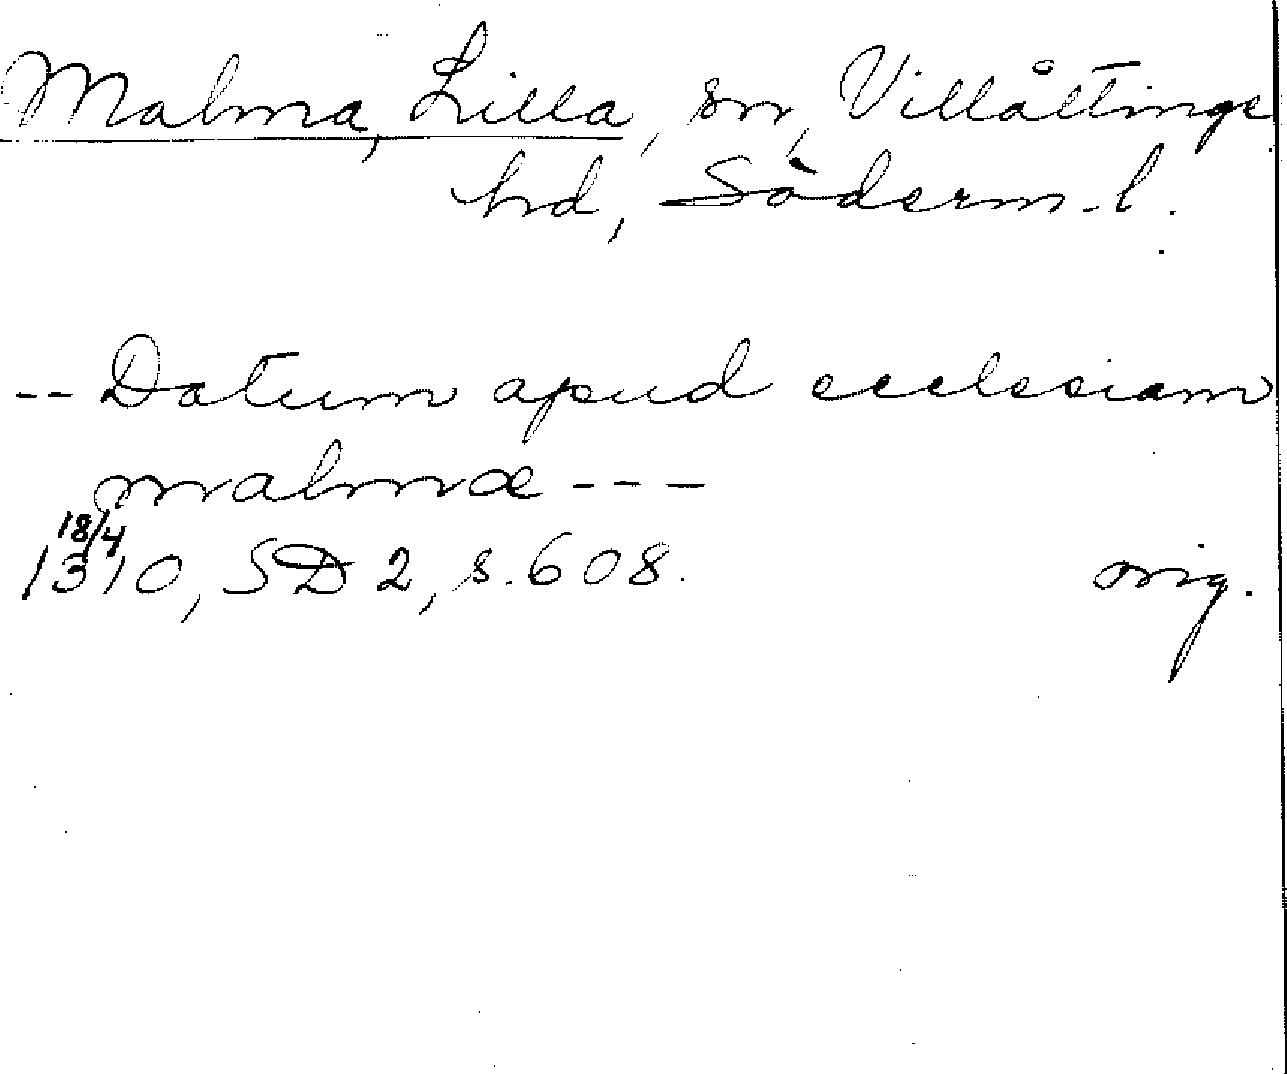 Malma, Lilla, sn, Villåttinge
hd, Söderm. l.
-- Datum apud ecclesiam
malmæ ---
18/4
1310, SD 2, s. 608. orig.